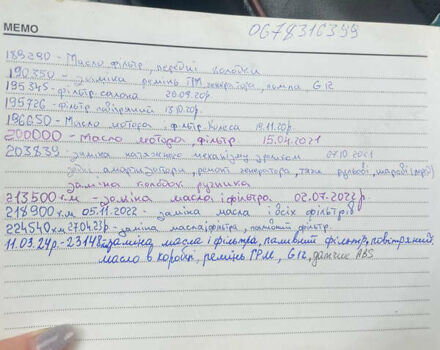 MEMO
0678316399
189290 - Масло фільтр, передні колодки
190350 - заміна ремінь ГРМ, помпа, G12
195345 - фільтр салона 20.09.20р
195726 - фільтр повітряний 13.10.20р.
196650 - Масло мотора фільтр. Колеса 19.11.20р.
200000 - Масло мотора, фільтр 15.04.2021
203839 - заміна натяжного механізму 07.10.2021
задні амортизатори, ремонт генератора, тяги рульові,
заміна колодок ручника
213500 к.м - заміна масла і фільтра. 02.07.2022р
218900 к.м 05.11.2022 - заміна масла і всіх фільтрів
224540 км 27.04.23р - заміна масла, фільтра, паливний фільтр.
11.03.24р. - 231482 заміна масла і фільтра, паливний фільтр, повітряний
масло в коробці, ремінь ГРМ, G12, датчик ABS